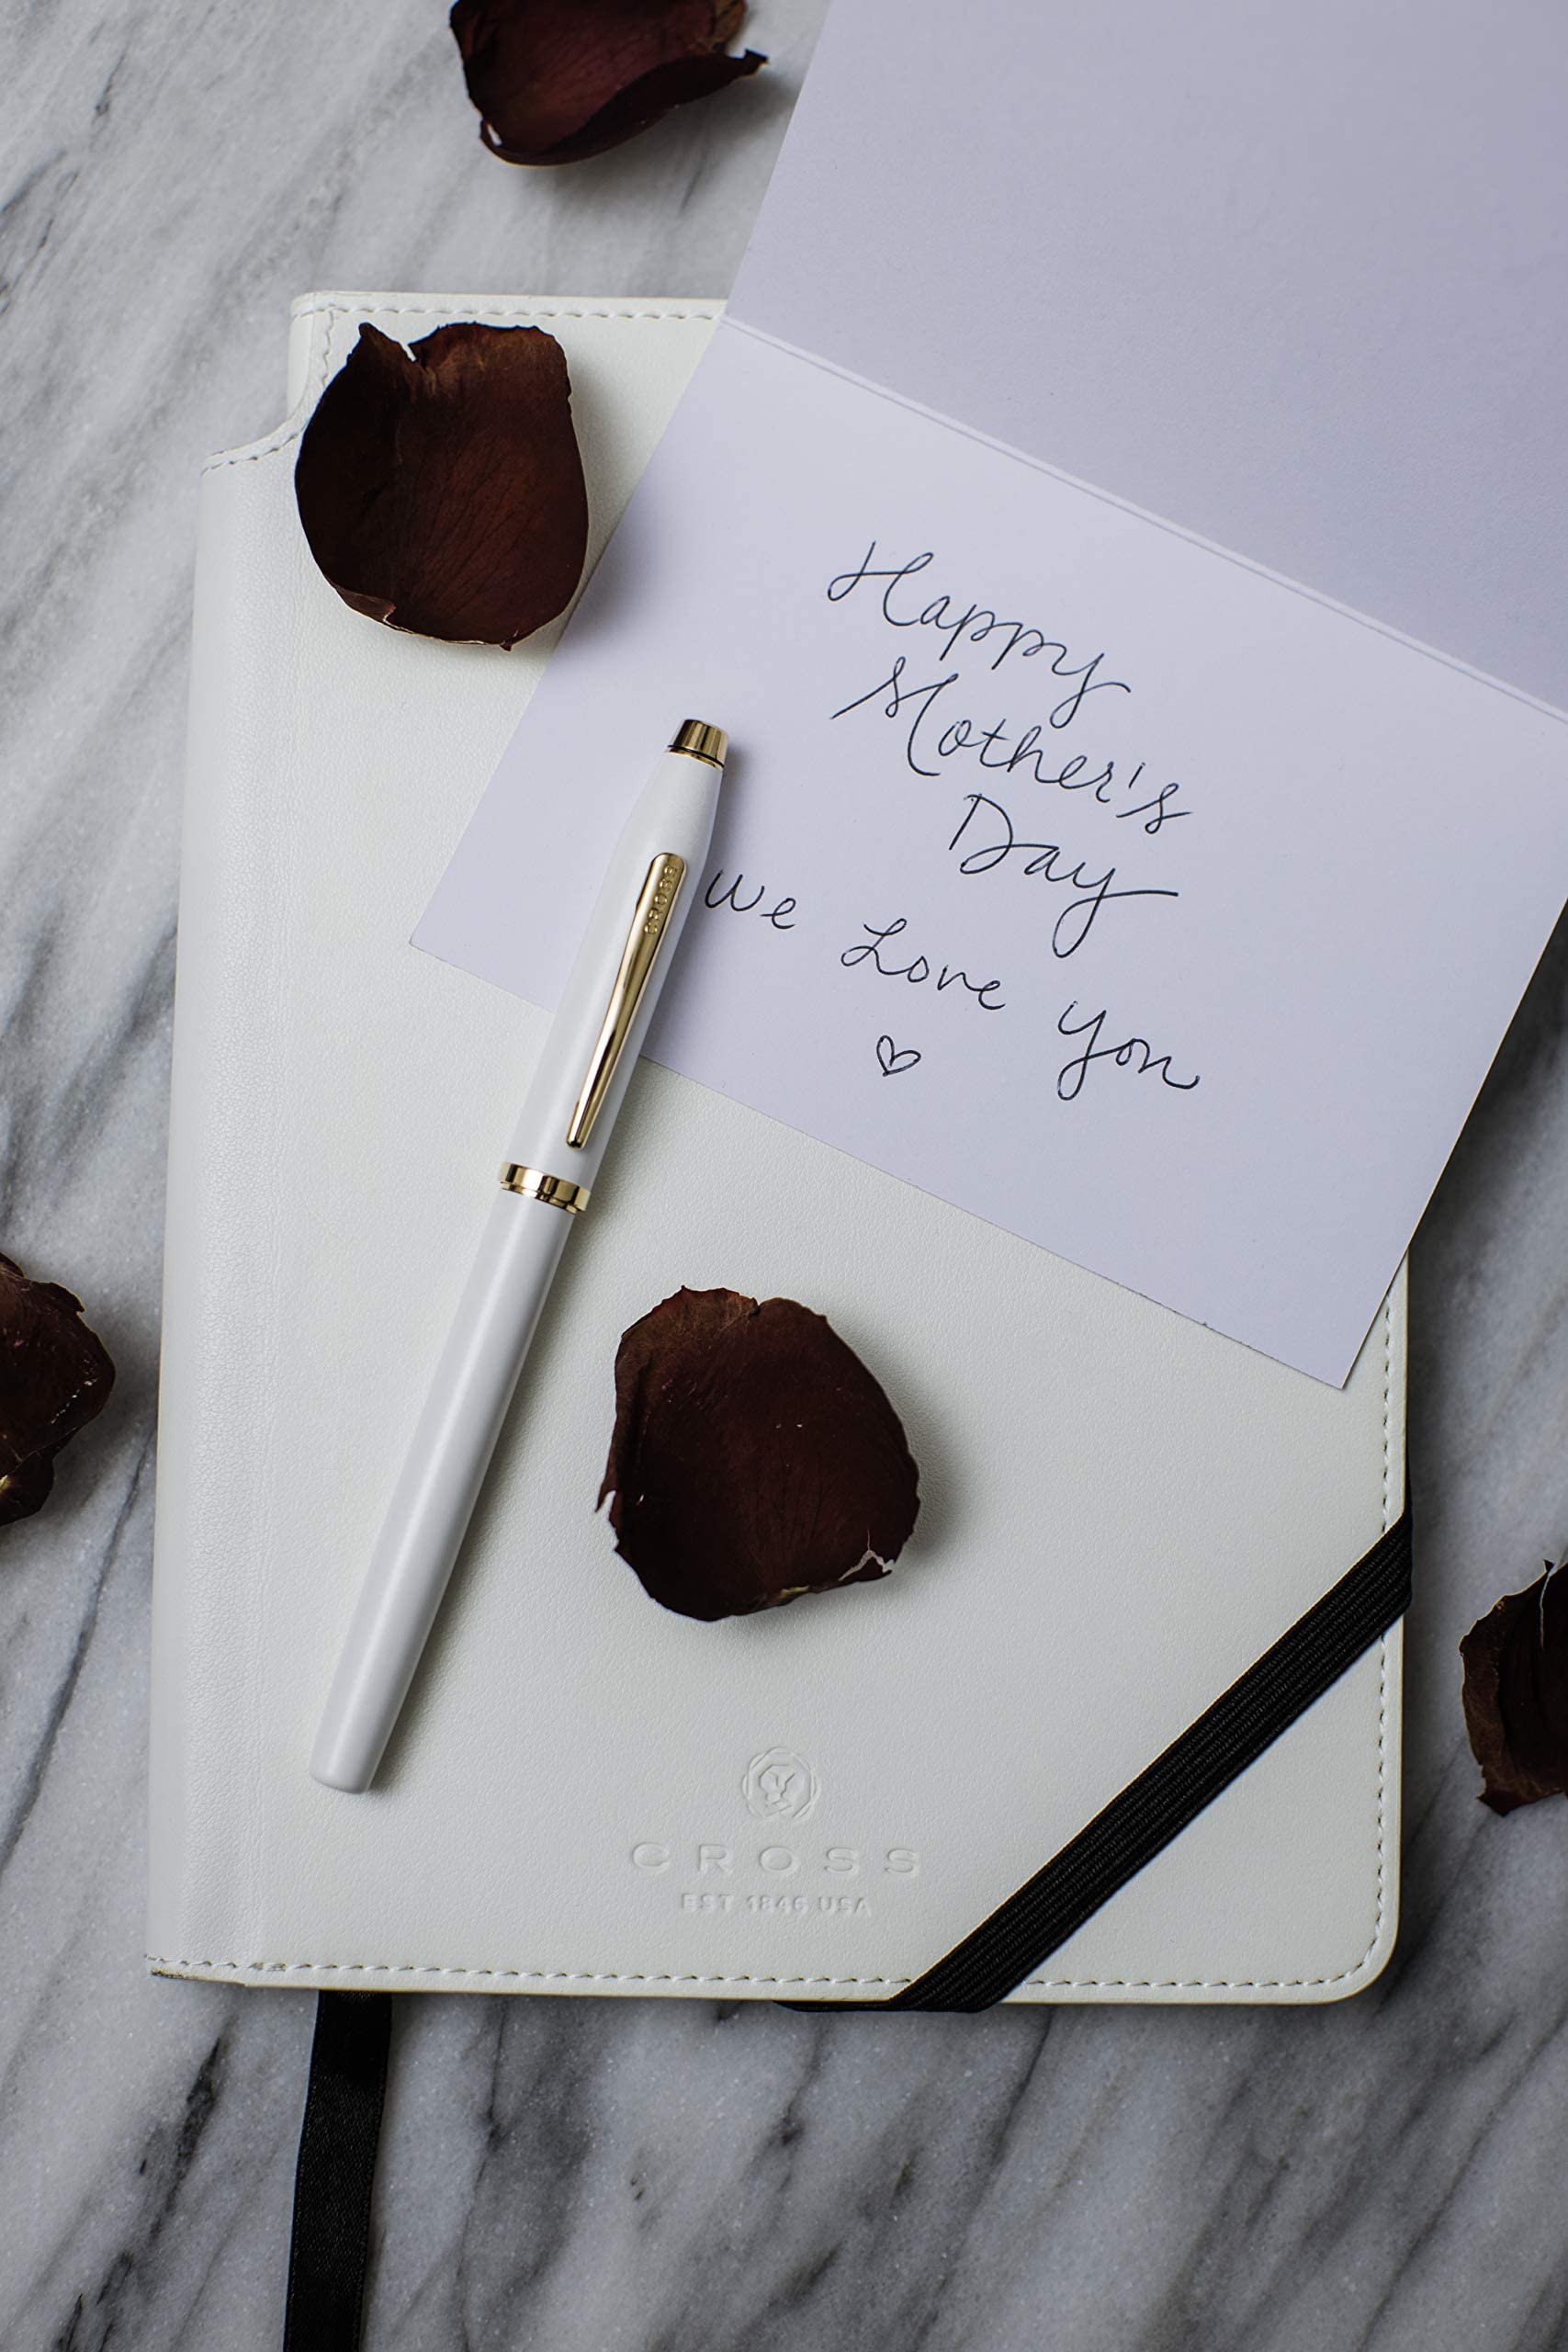 Happy
Mother's
Day
we Love you
CROSS
CROSS
EST 1846 USA